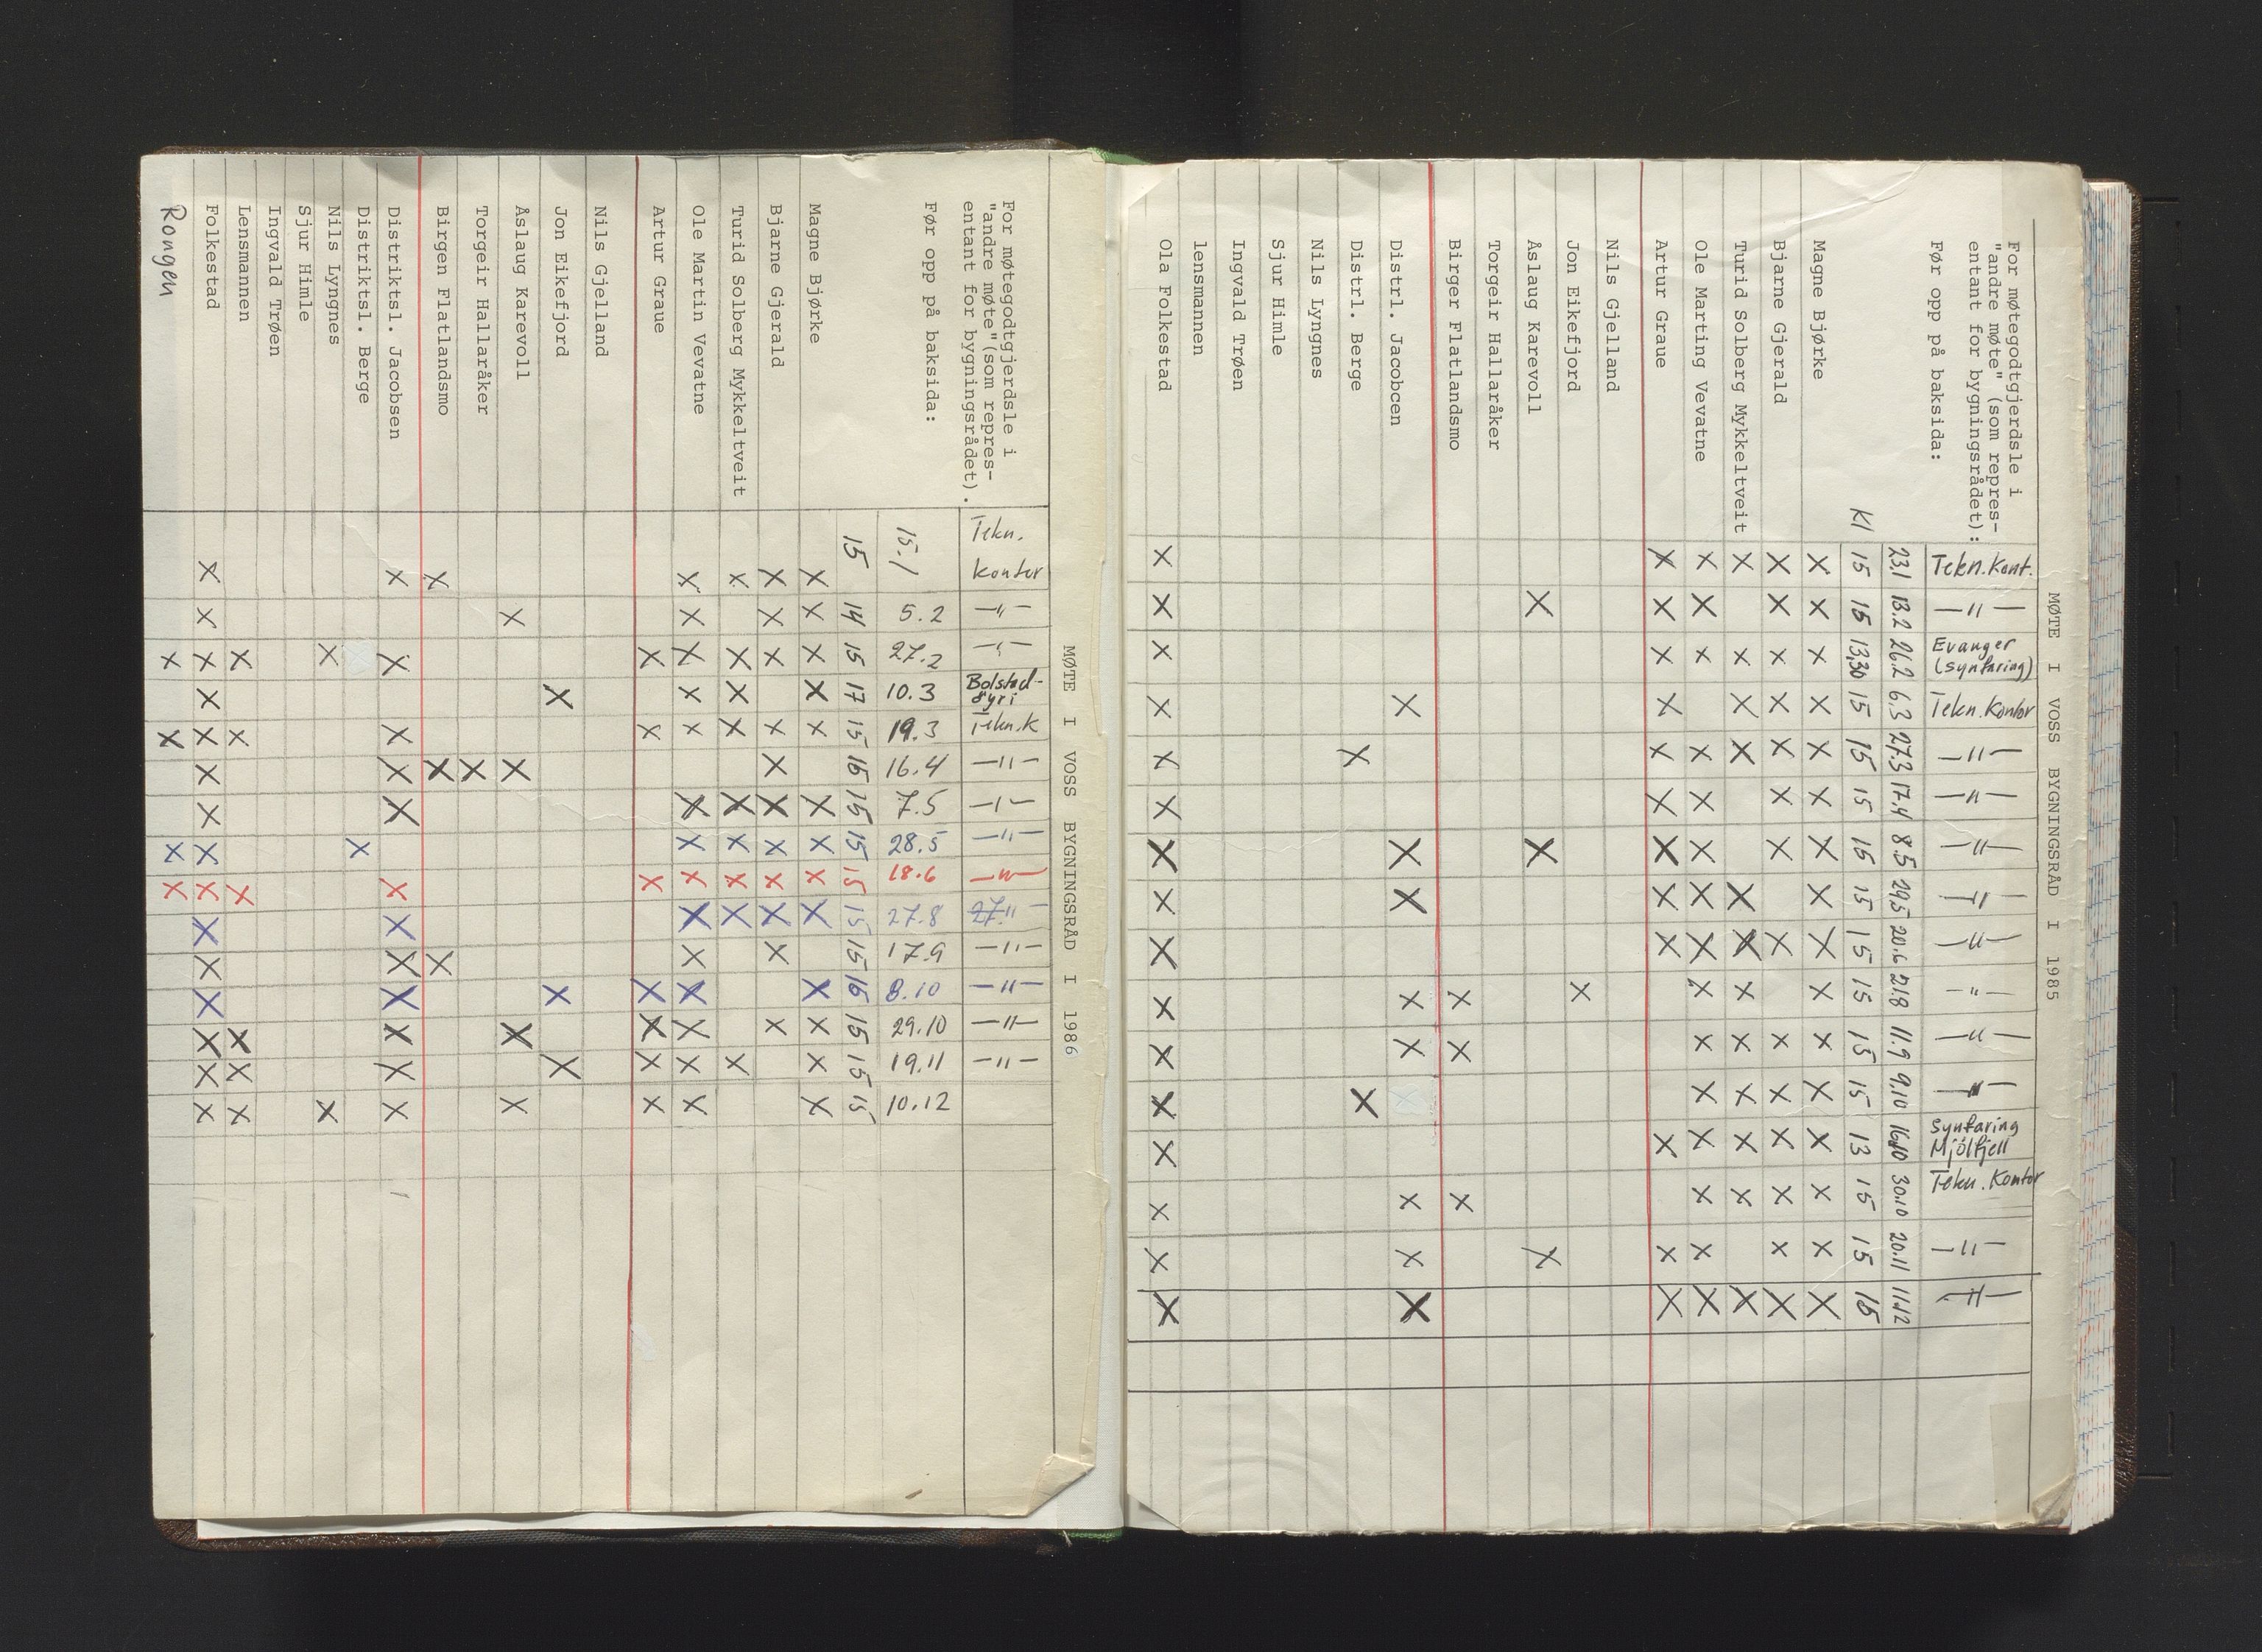 MØTE I VOSS BYGNINGSRÅD I 1985
For møtegodtgjerdsle i
"andre møte" (som repres-
entant for bygningsrådet):
Før opp på baksida:
Tekn.Kont. —"— Evanger (synfaring) Tekn.Kontor —"— —"— —"— —"— —"— —"— —"— —"— Synfaring Mjölfjell Tekn.Kontor —"— —"—
23.1 13.2 26.2 6.3 27.3 17.4 8.5 29.5 20.6 21.8 11.9 9.10 16.10 30.10 20.11 11.12
Kl 15 15 13,30 15 15 15 15 15 15 15 15 15 13 15 15 15
Magne Bjørke X X X X X X X X X X X X X X X X
Bjarne Gjerald X X X X X X X X X X X X X X
Turid Solberg Mykkeltveit X X X X X X X X X X X X
Ole Marting Vevatne X X X X X X X X X X X X X X X
Artur Graue X X X X X X X X X X X X
Nils Gjelland
Jon Eikefjord X
Åslaug Karevoll X X X
Torgeir Hallaråker
Birger Flatlandsmo X X X
Distrl. Jacobcen X X X X X X X X
Distrl. Berge X X
Nils Lyngnes
Sjur Himle
Ingvald Trøen
lensmannen
Ola Folkestad X X X X X X X X X X X X X X X X
MØTE I VOSS BYGNINGSRÅD I 1986
For møtegodtgjerdsle i
"andre møte"(som repres-
entant for bygningsrådet).
Før opp på baksida:
Tekn. Kontor —"— —"— Bolstad- øyri Tekn.K —"— —"— —"— —"— 27. —"— —"— —"— —"— —"—
15.1 5.2 27.2 10.3 19.3 16.4 7.5 28.5 18.6 27.8 17.9 8.10 29.10 19.11 10.12
15 14 15 17 15 15 15 15 15 15 15 15 15 15 15
Magne Bjørke X X X X X X X X X X X X X
Bjarne Gjerald X X X X X X X X X X X
Turid Solberg Mykkeltveit X X X X X X X X X
Ole Martin Vevatne X X X X X X X X X X X X X X
Artur Graue X X X X X X X
Nils Gjelland
Jon Eikefjord X X X
Åslaug Karevoll X X X X
Torgeir Hallaråker X
Birgen Flatlandsmo X X X
Distriktsl. Jacobsen X X X X X X X X X X X X
Distriktsl. Berge X
Nils Lyngnes X X
Sjur Himle
Ingvald Trøen
Lensmannen X X X X X X
Folkestad X X X X X X X X X X X X X X X
Rongen X X X X